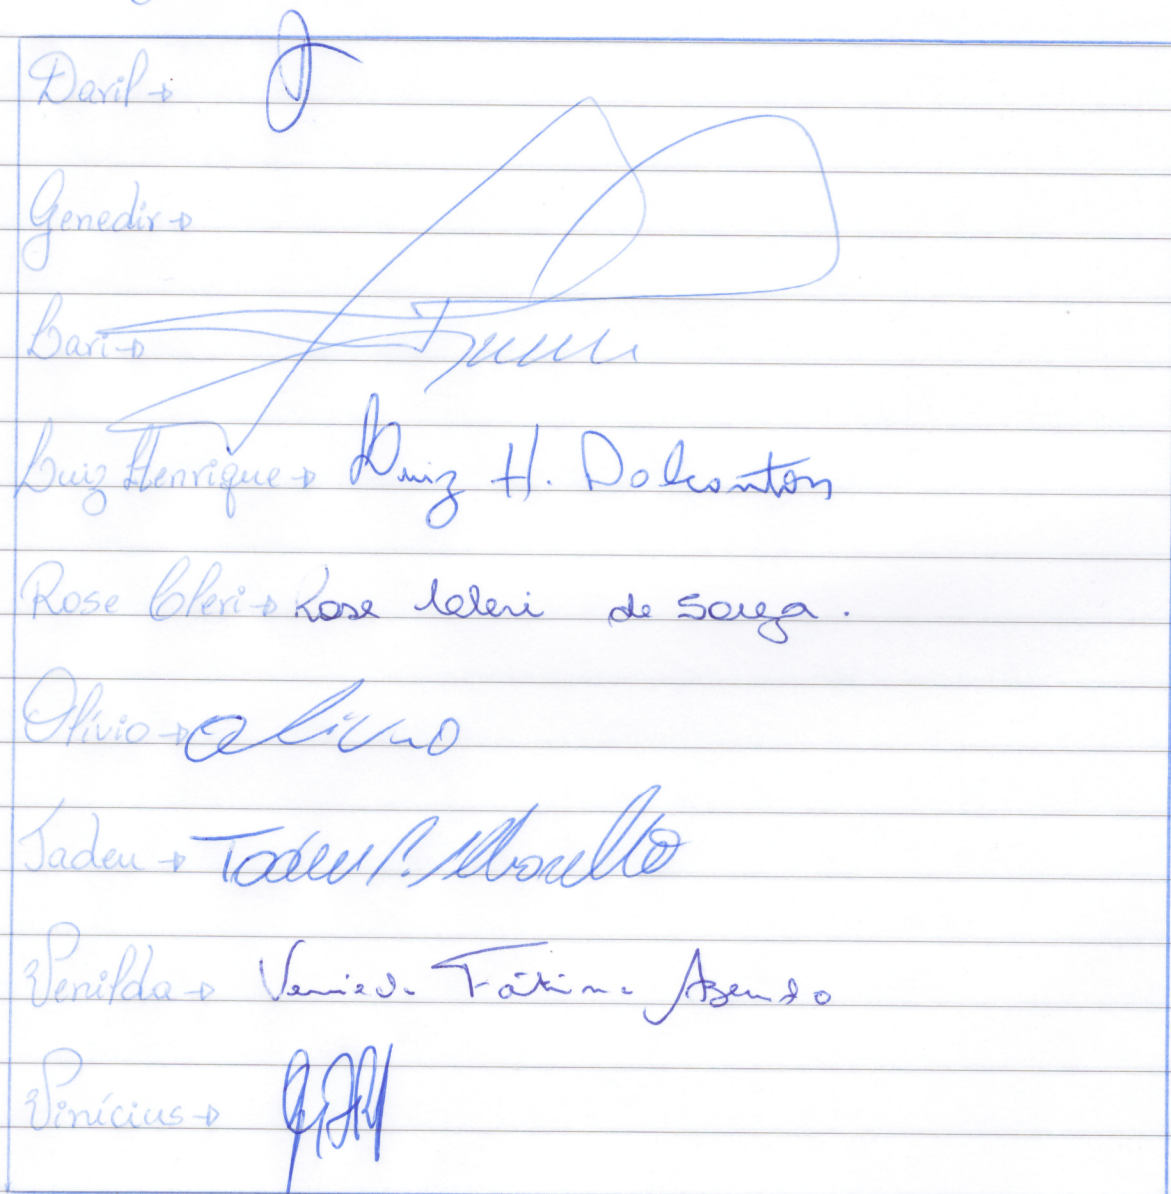 Daril →
Genedir →
Lari →
Luiz Henrique → Luiz H. Dalcanton
Rose Cleri → Rose Cleri de Souza.
Olívio → Olivio
Tadeu → Tadeu P.
Venilda → Venilda Fátima Azevedo
Vinícius →